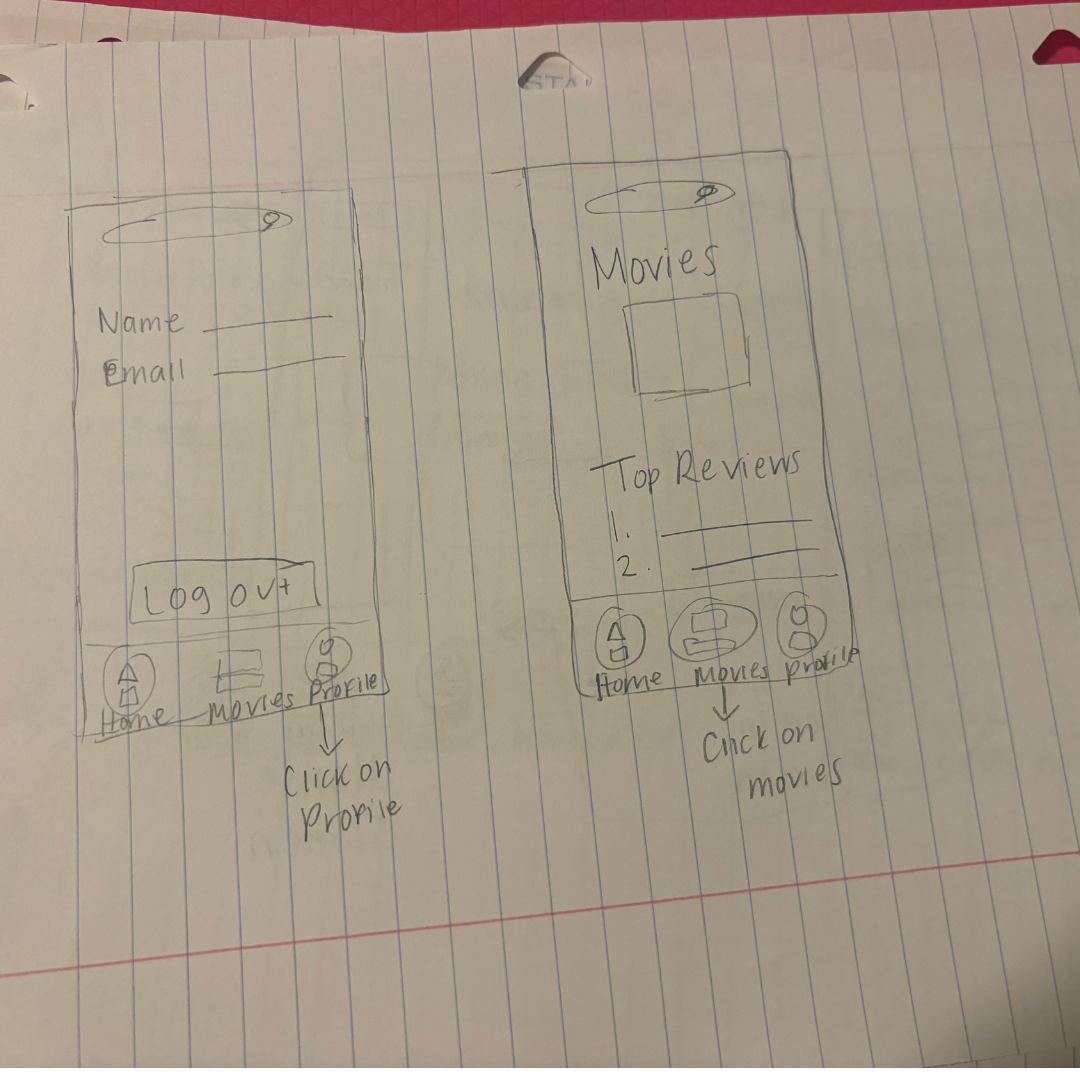 STA
Name
Email
Log out
Home Movies Profile
Click on
Profile
Movies
Top Reviews
1.
2.
Home Movies profile
Click on
movies